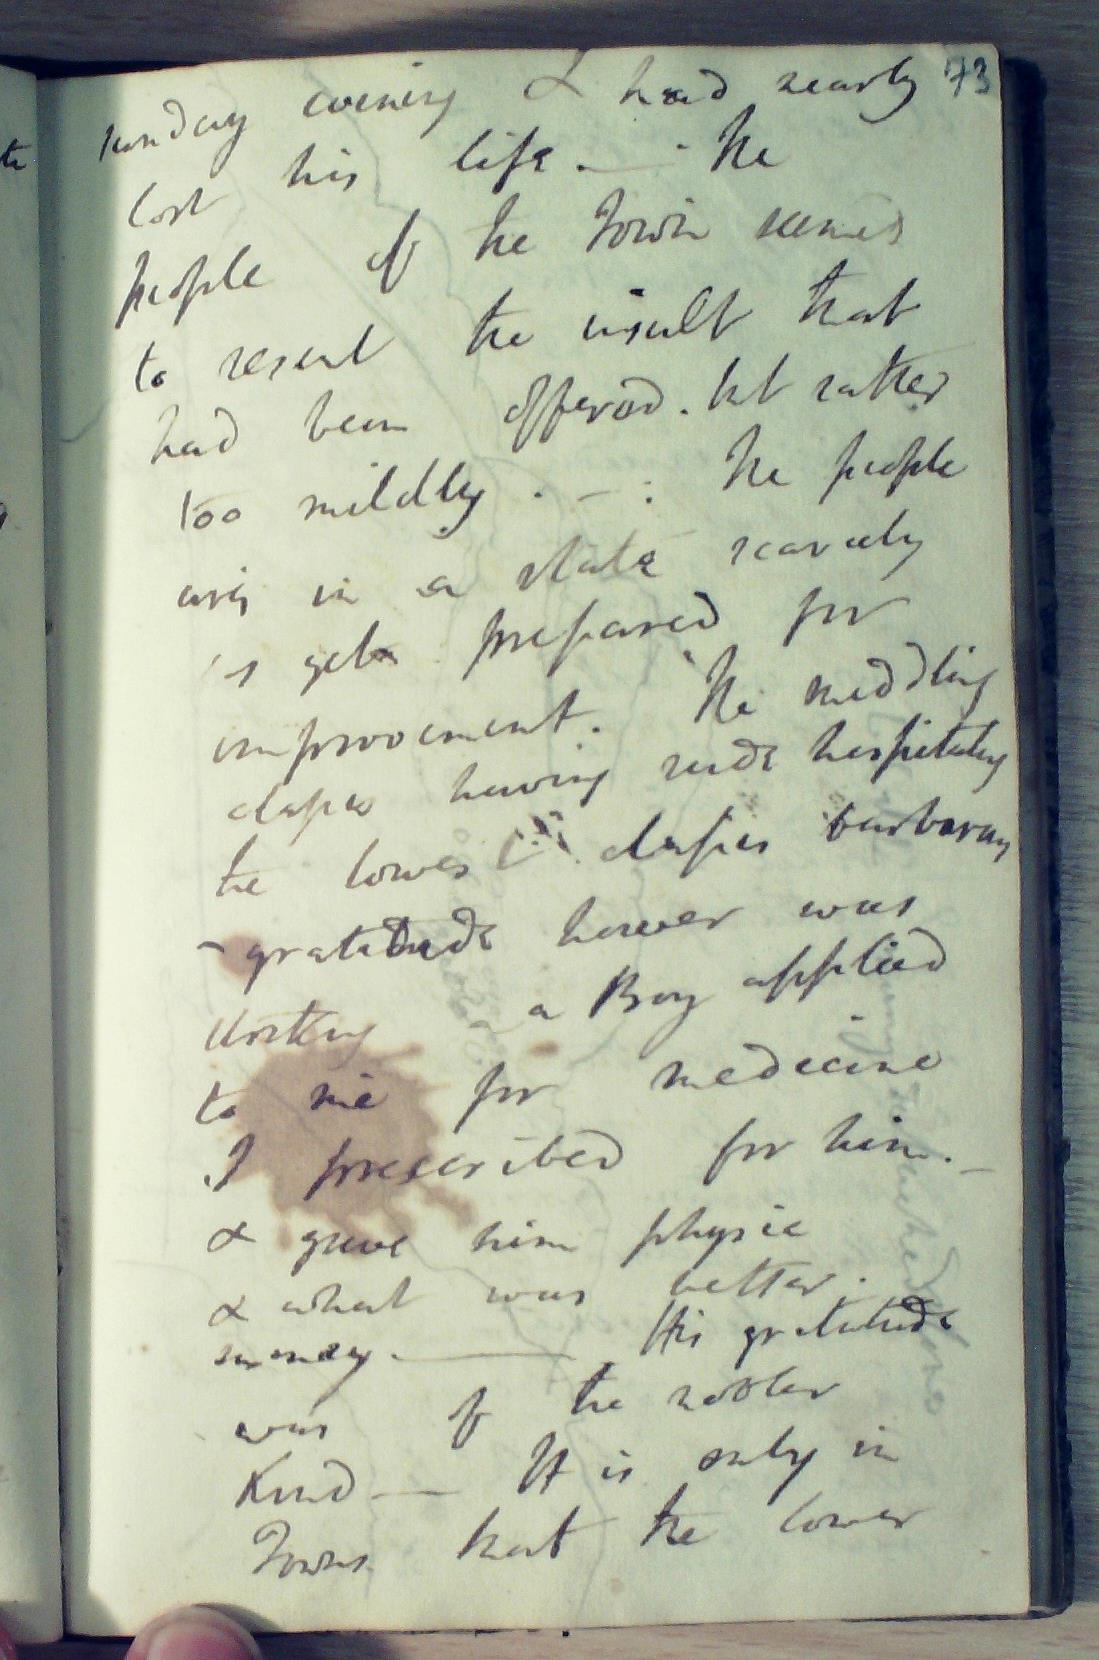 73
sunday evening & had nearly
lost his life. — The
people of the Town seemed
to resent the insult that
had been offered. but rather
too mildly . — : The people
are in a state scarcely
as yet prepared for
improvement. The middling
classes having rude hospitality
the lower classes barbarous
- gratitude however was
a Boy applied
to me for medicine
I prescribed for him. —
& gave him physic
& what was better.
money. — His gratitude
was of the nobler
Kind — It is only in
Towns that the lower